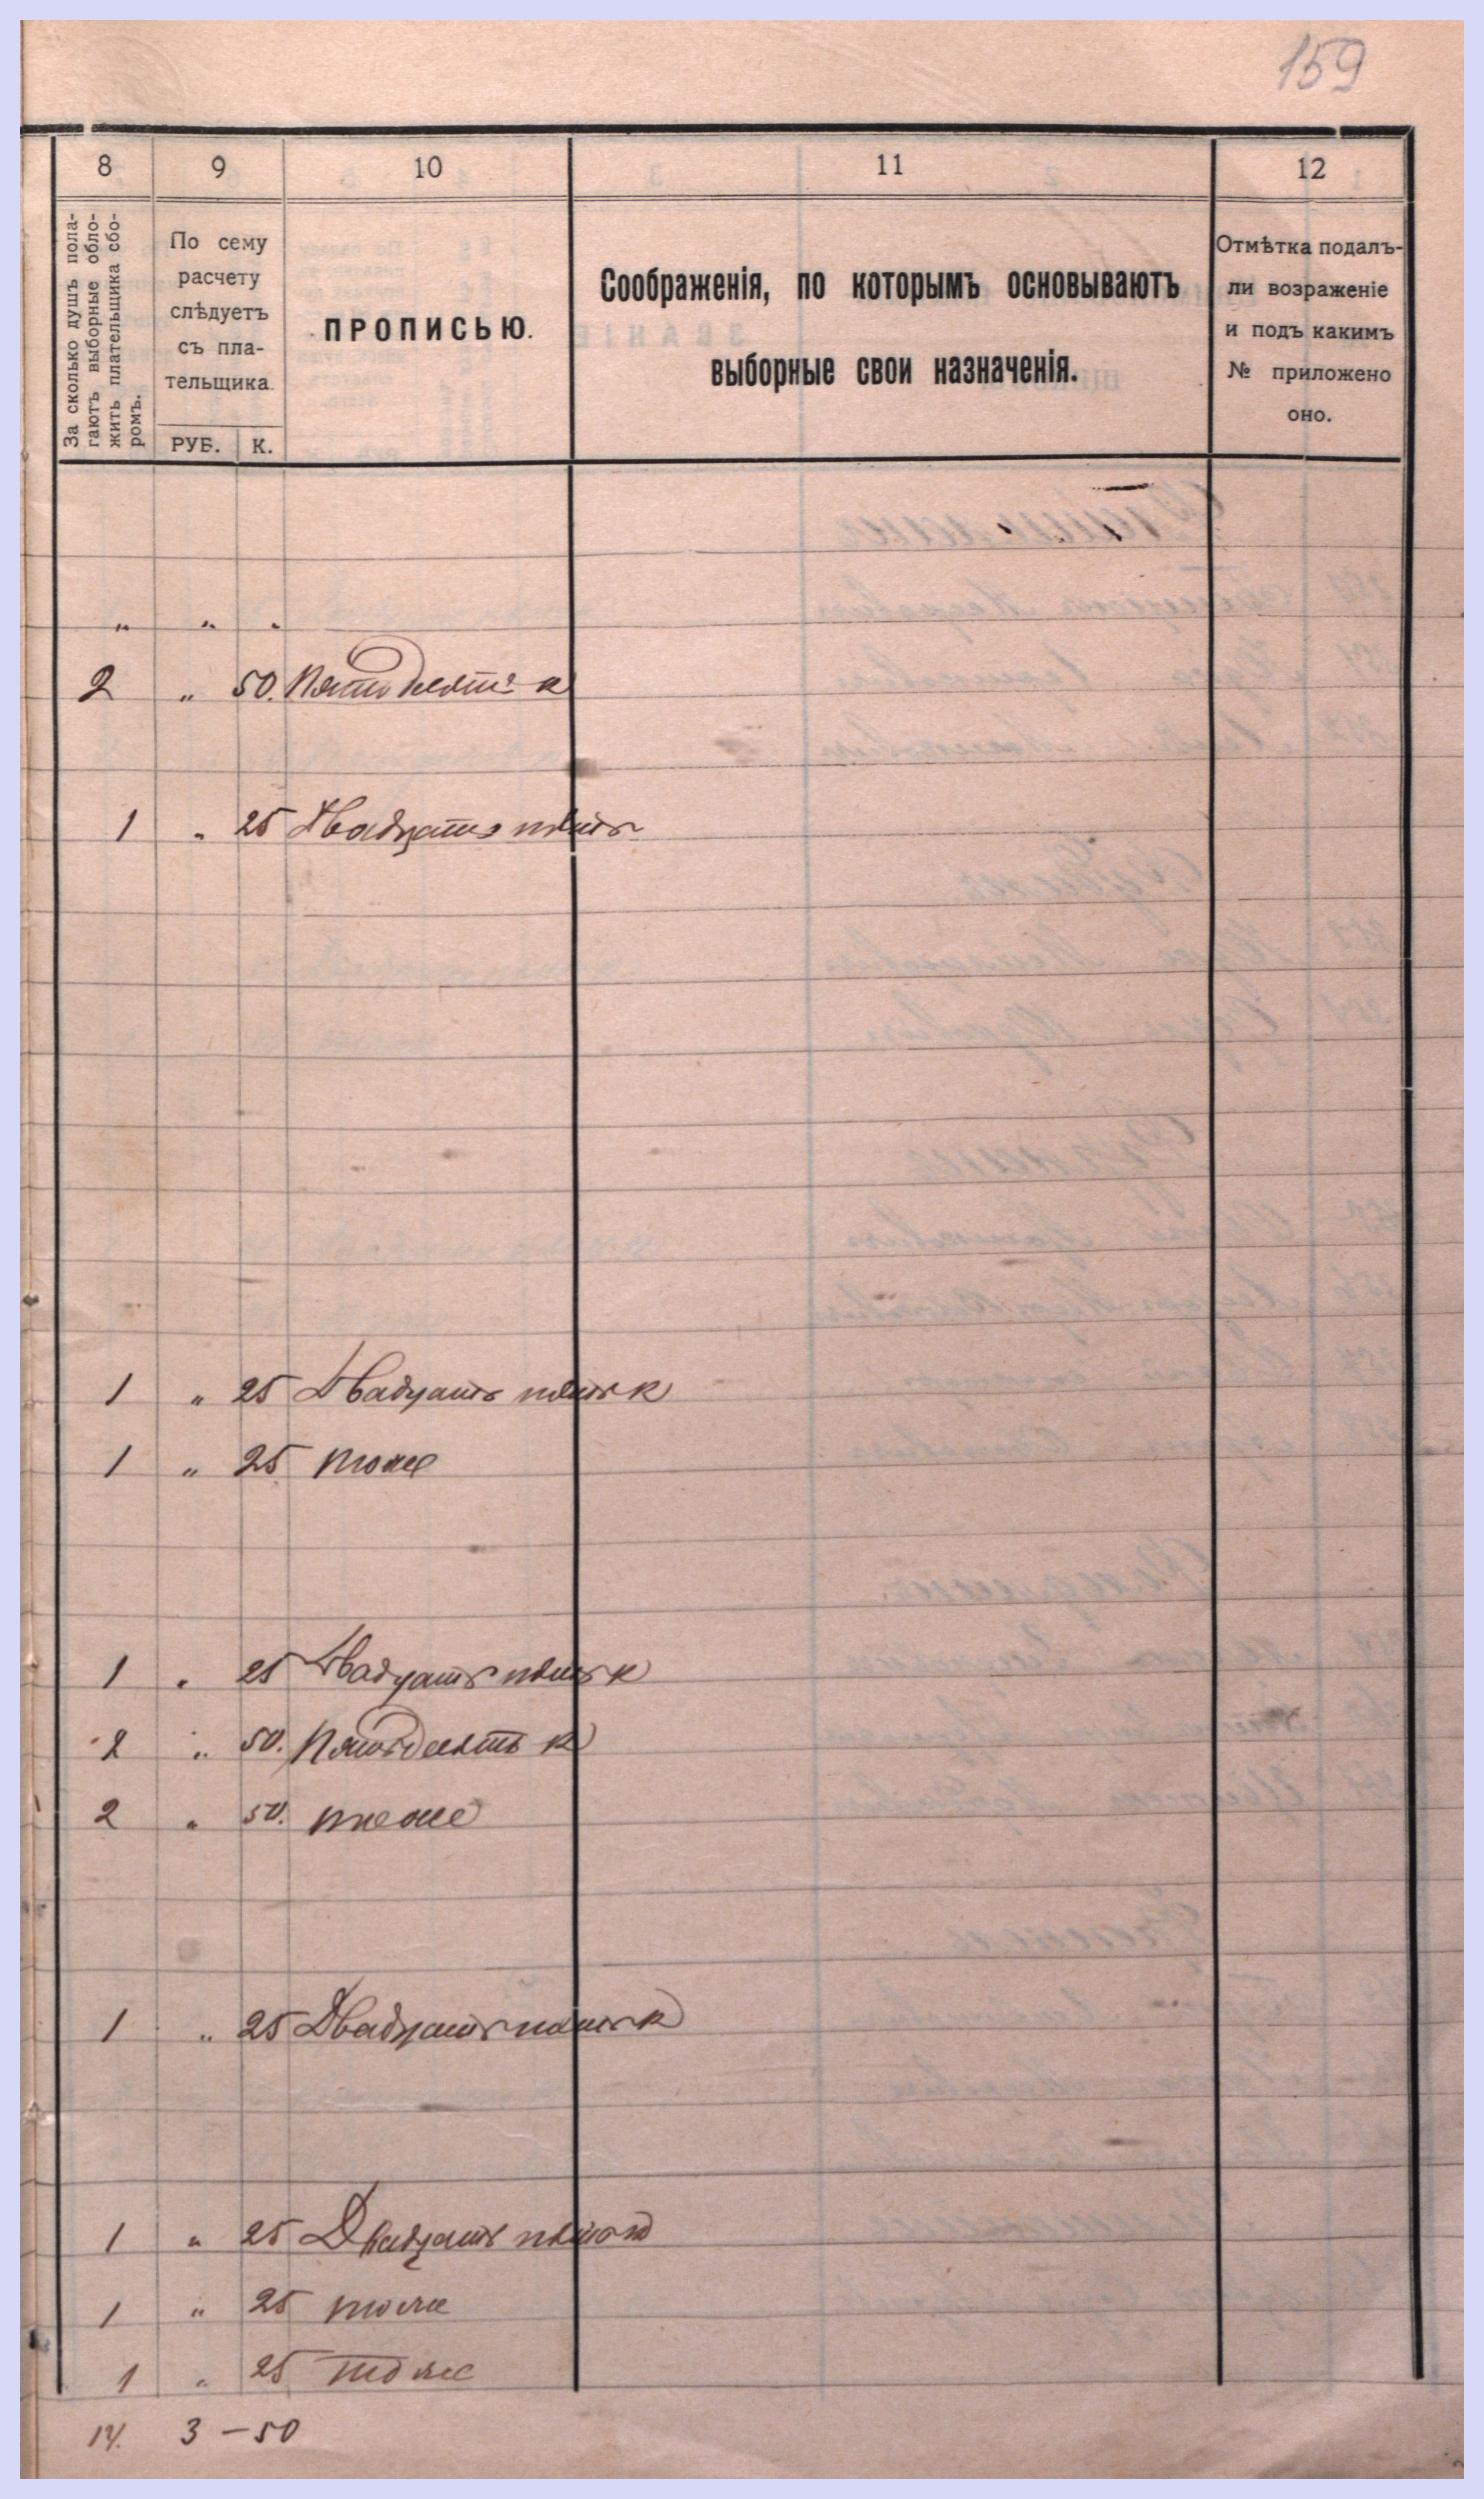 159
8 9 10 11 12
За сколько душъ пола-
гаютъ выборные обло-
жить плательщика сбо-
ромъ.
По сему
расчету
слѣдуетъ
съ пла-
тельщика.
РУБ. К.
ПРОПИСЬЮ.
Соображенія, по которымъ основываютъ
выборные свои назначенія.
Отмѣтка подалъ-
ли возраженіе
и подъ какимъ
№ приложено
оно.
„ „ „
2 „ 50. Пятьдесятъ к
1 „ 25 Двадцать пять
1 „ 25 Двадцать пять к
1 „ 25 тоже
1 „ 25 Двадцать пять к
2 „ 50. Пятьдесятъ к
2 „ 50. тоже
1 „ 25 Двадцать пять к
1 „ 25 Двадцать пять к
1 „ 25 тоже
1 „ 25 тоже
14. 3 — 50